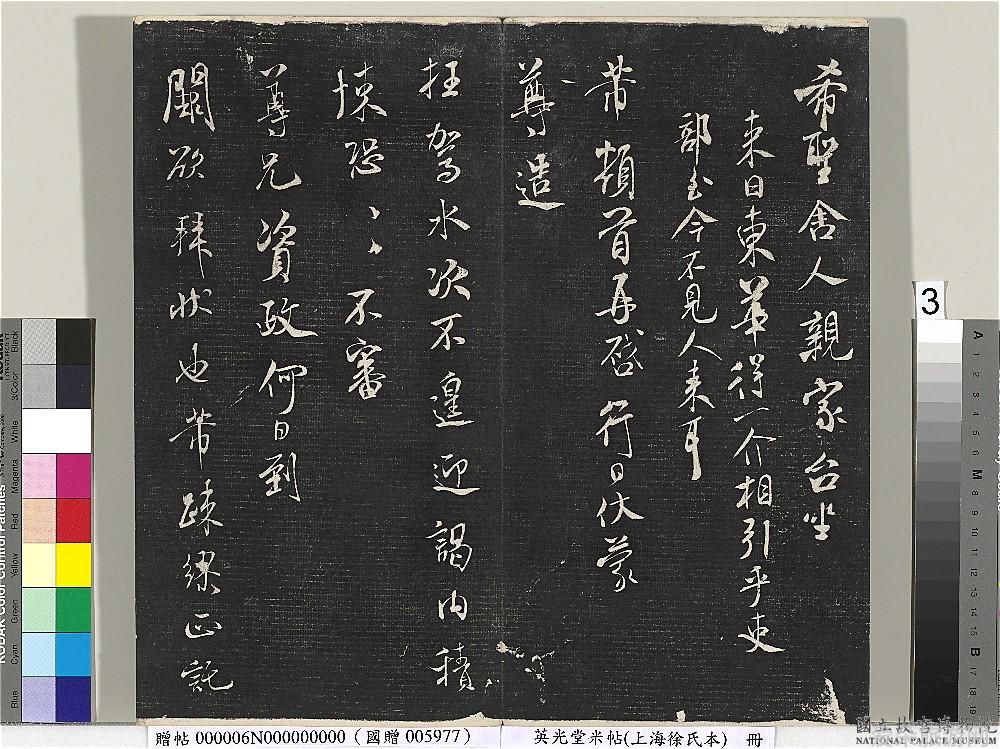 希聖舍人親家台坐
來日東華得一介相引乎吏
部至今不見人來耳
芾頓首再啓行日伏蒙
尊造
枉駕水次不遑迎謁內積
悚恐〻〻不審
尊兄資政何日到
闕欲拜狀也芾疎繆正託
3
KODAK Color Control Patches
Blue
Cyan
Green
Yellow
Red
Magenta
White
3/Color
Black
A
1
2
3
4
5
6
M
8
9
10
11
12
13
14
15
B
17
18
19
贈帖 000006N000000000 (國贈 005977)
英光堂米帖(上海徐氏本) 冊
國立故宮博物院
NATIONAL PALACE MUSEUM